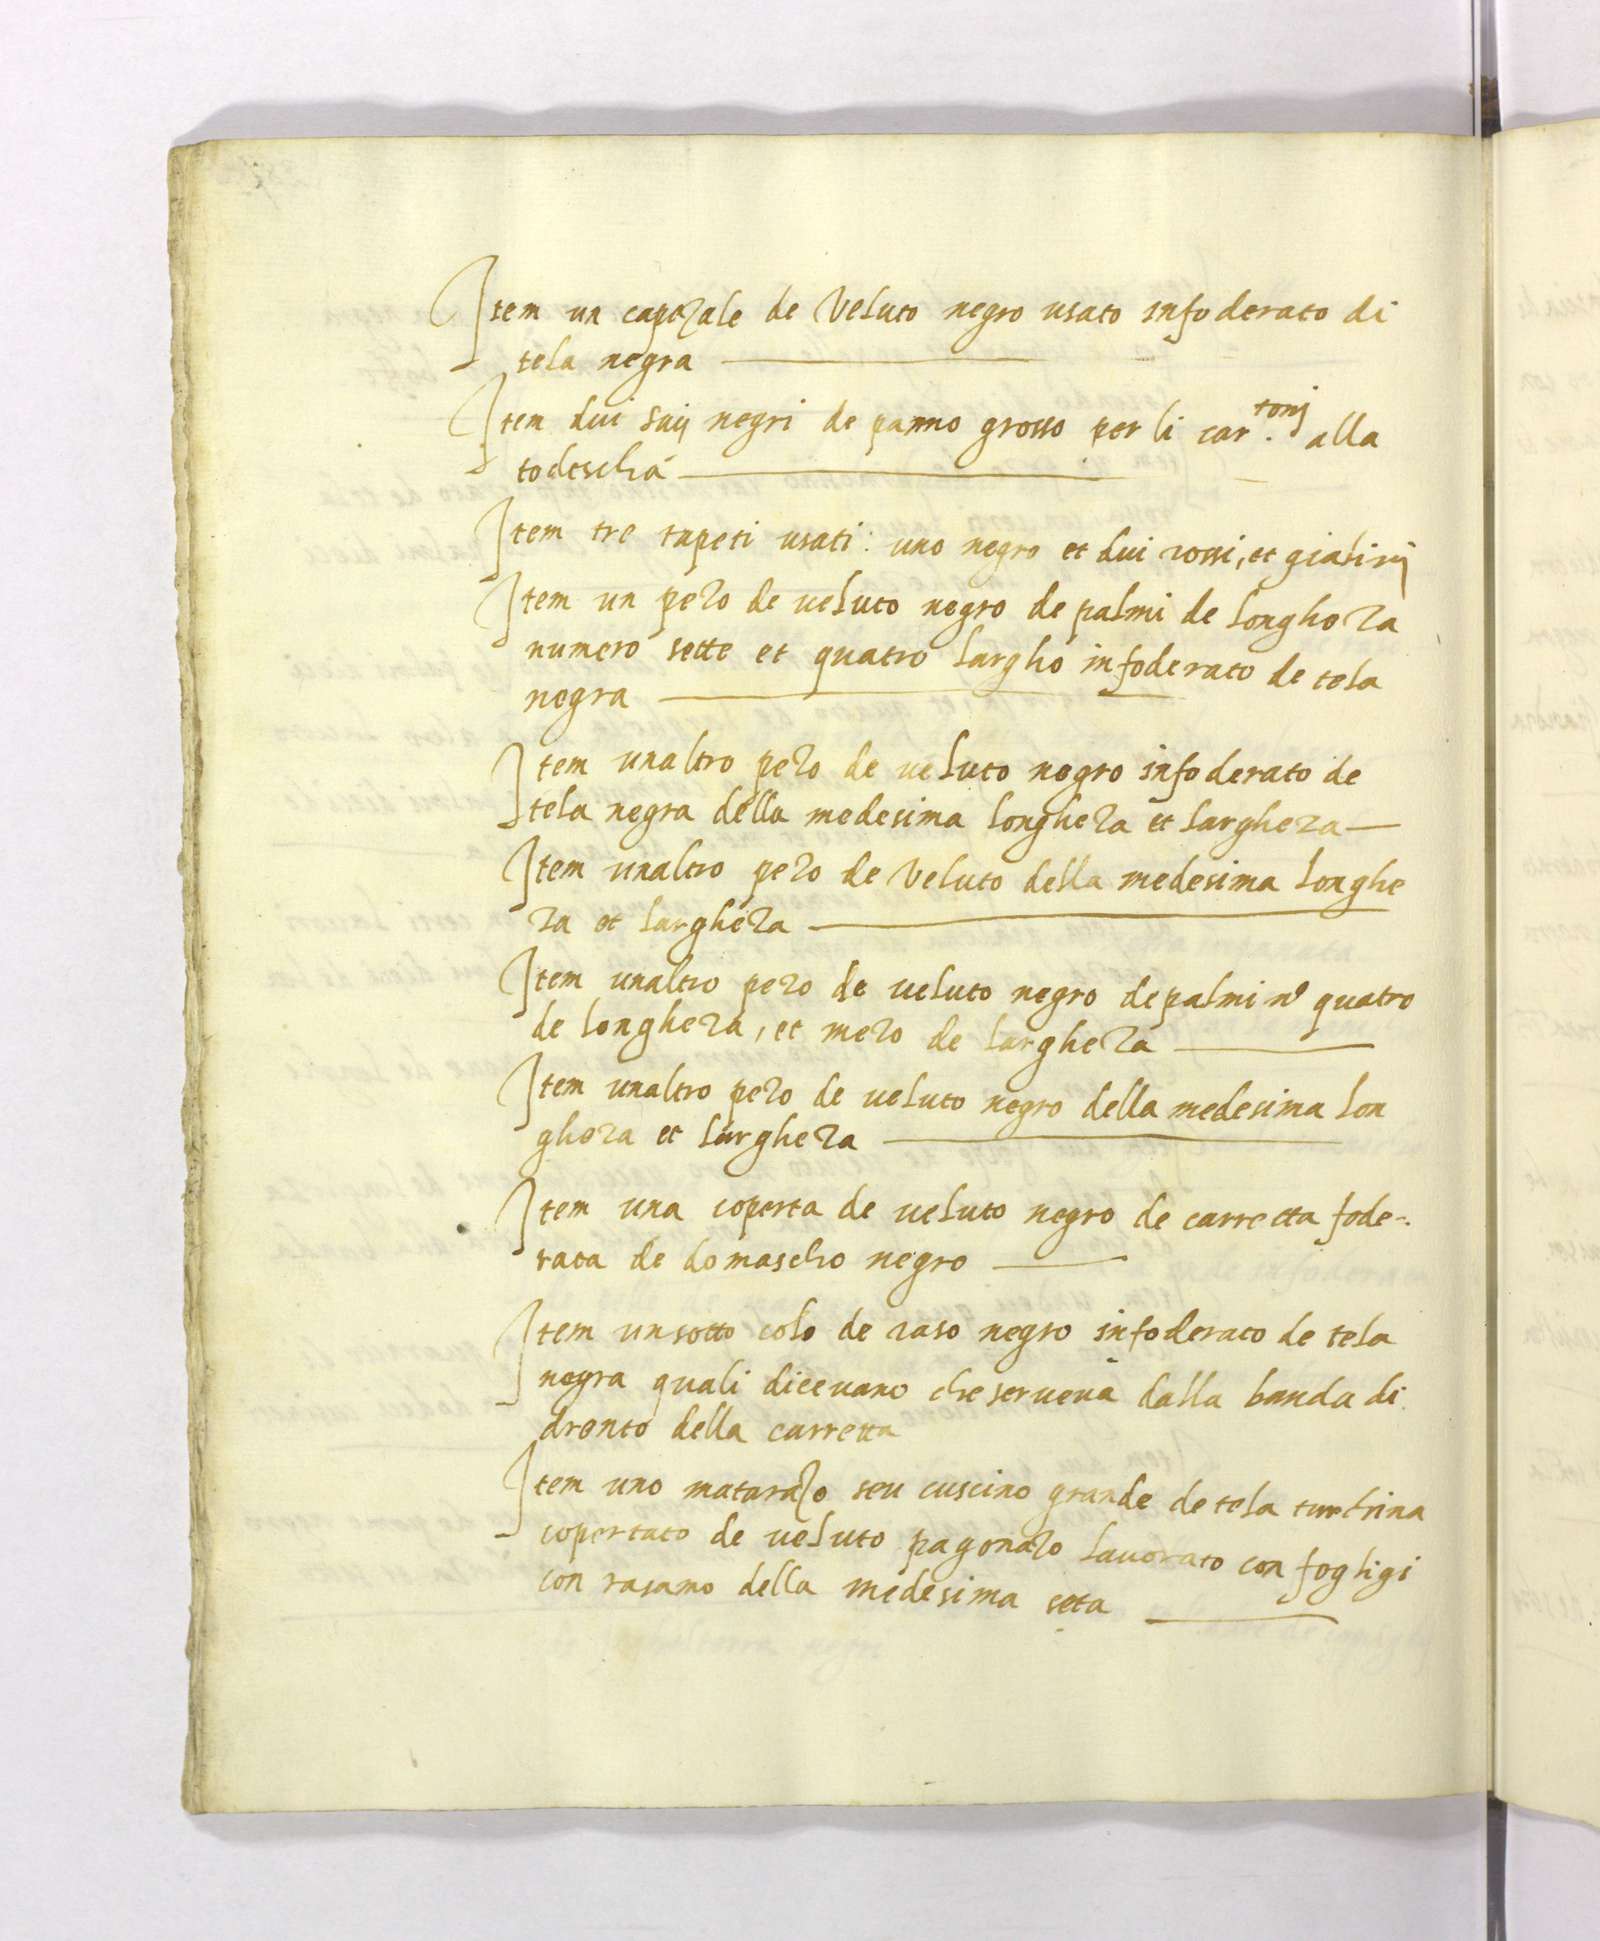 Item un capazale de Veluto negro usato infoderato di
tela negra
Item dui saij negri de panno grosso per li car.tonj alla
todescha
Item tre tapeti usati: uno negro et dui rossi, et gialinj
Item un pezo de veluto negro de palmi de longheza
numero sette et quatro largho infoderato de tela
negra
Item unaltro pezo de veluto negro infoderato de
tela negra della medesima longheza et largheza
Item unaltro pezo de Veluto della medesima longhe
za et largheza
Item unaltro pezo de veluto negro de palmi no quatro
de longheza, et mezo de largheza
Item unaltro pezo de veluto negro della medesima lon
gheza et largheza
Item una coperta de veluto negro de carretta fode-
rata de domascho negro
Item un sotto celo de raso negro infoderato de tela
negra quali dicevano che serveva dalla banda di
drento della carretta
Item uno matarazo seu cuscino grande de tela turchina
copertato de veluto pagonazo lavorato con foghigi
con rasamo della medesima seta